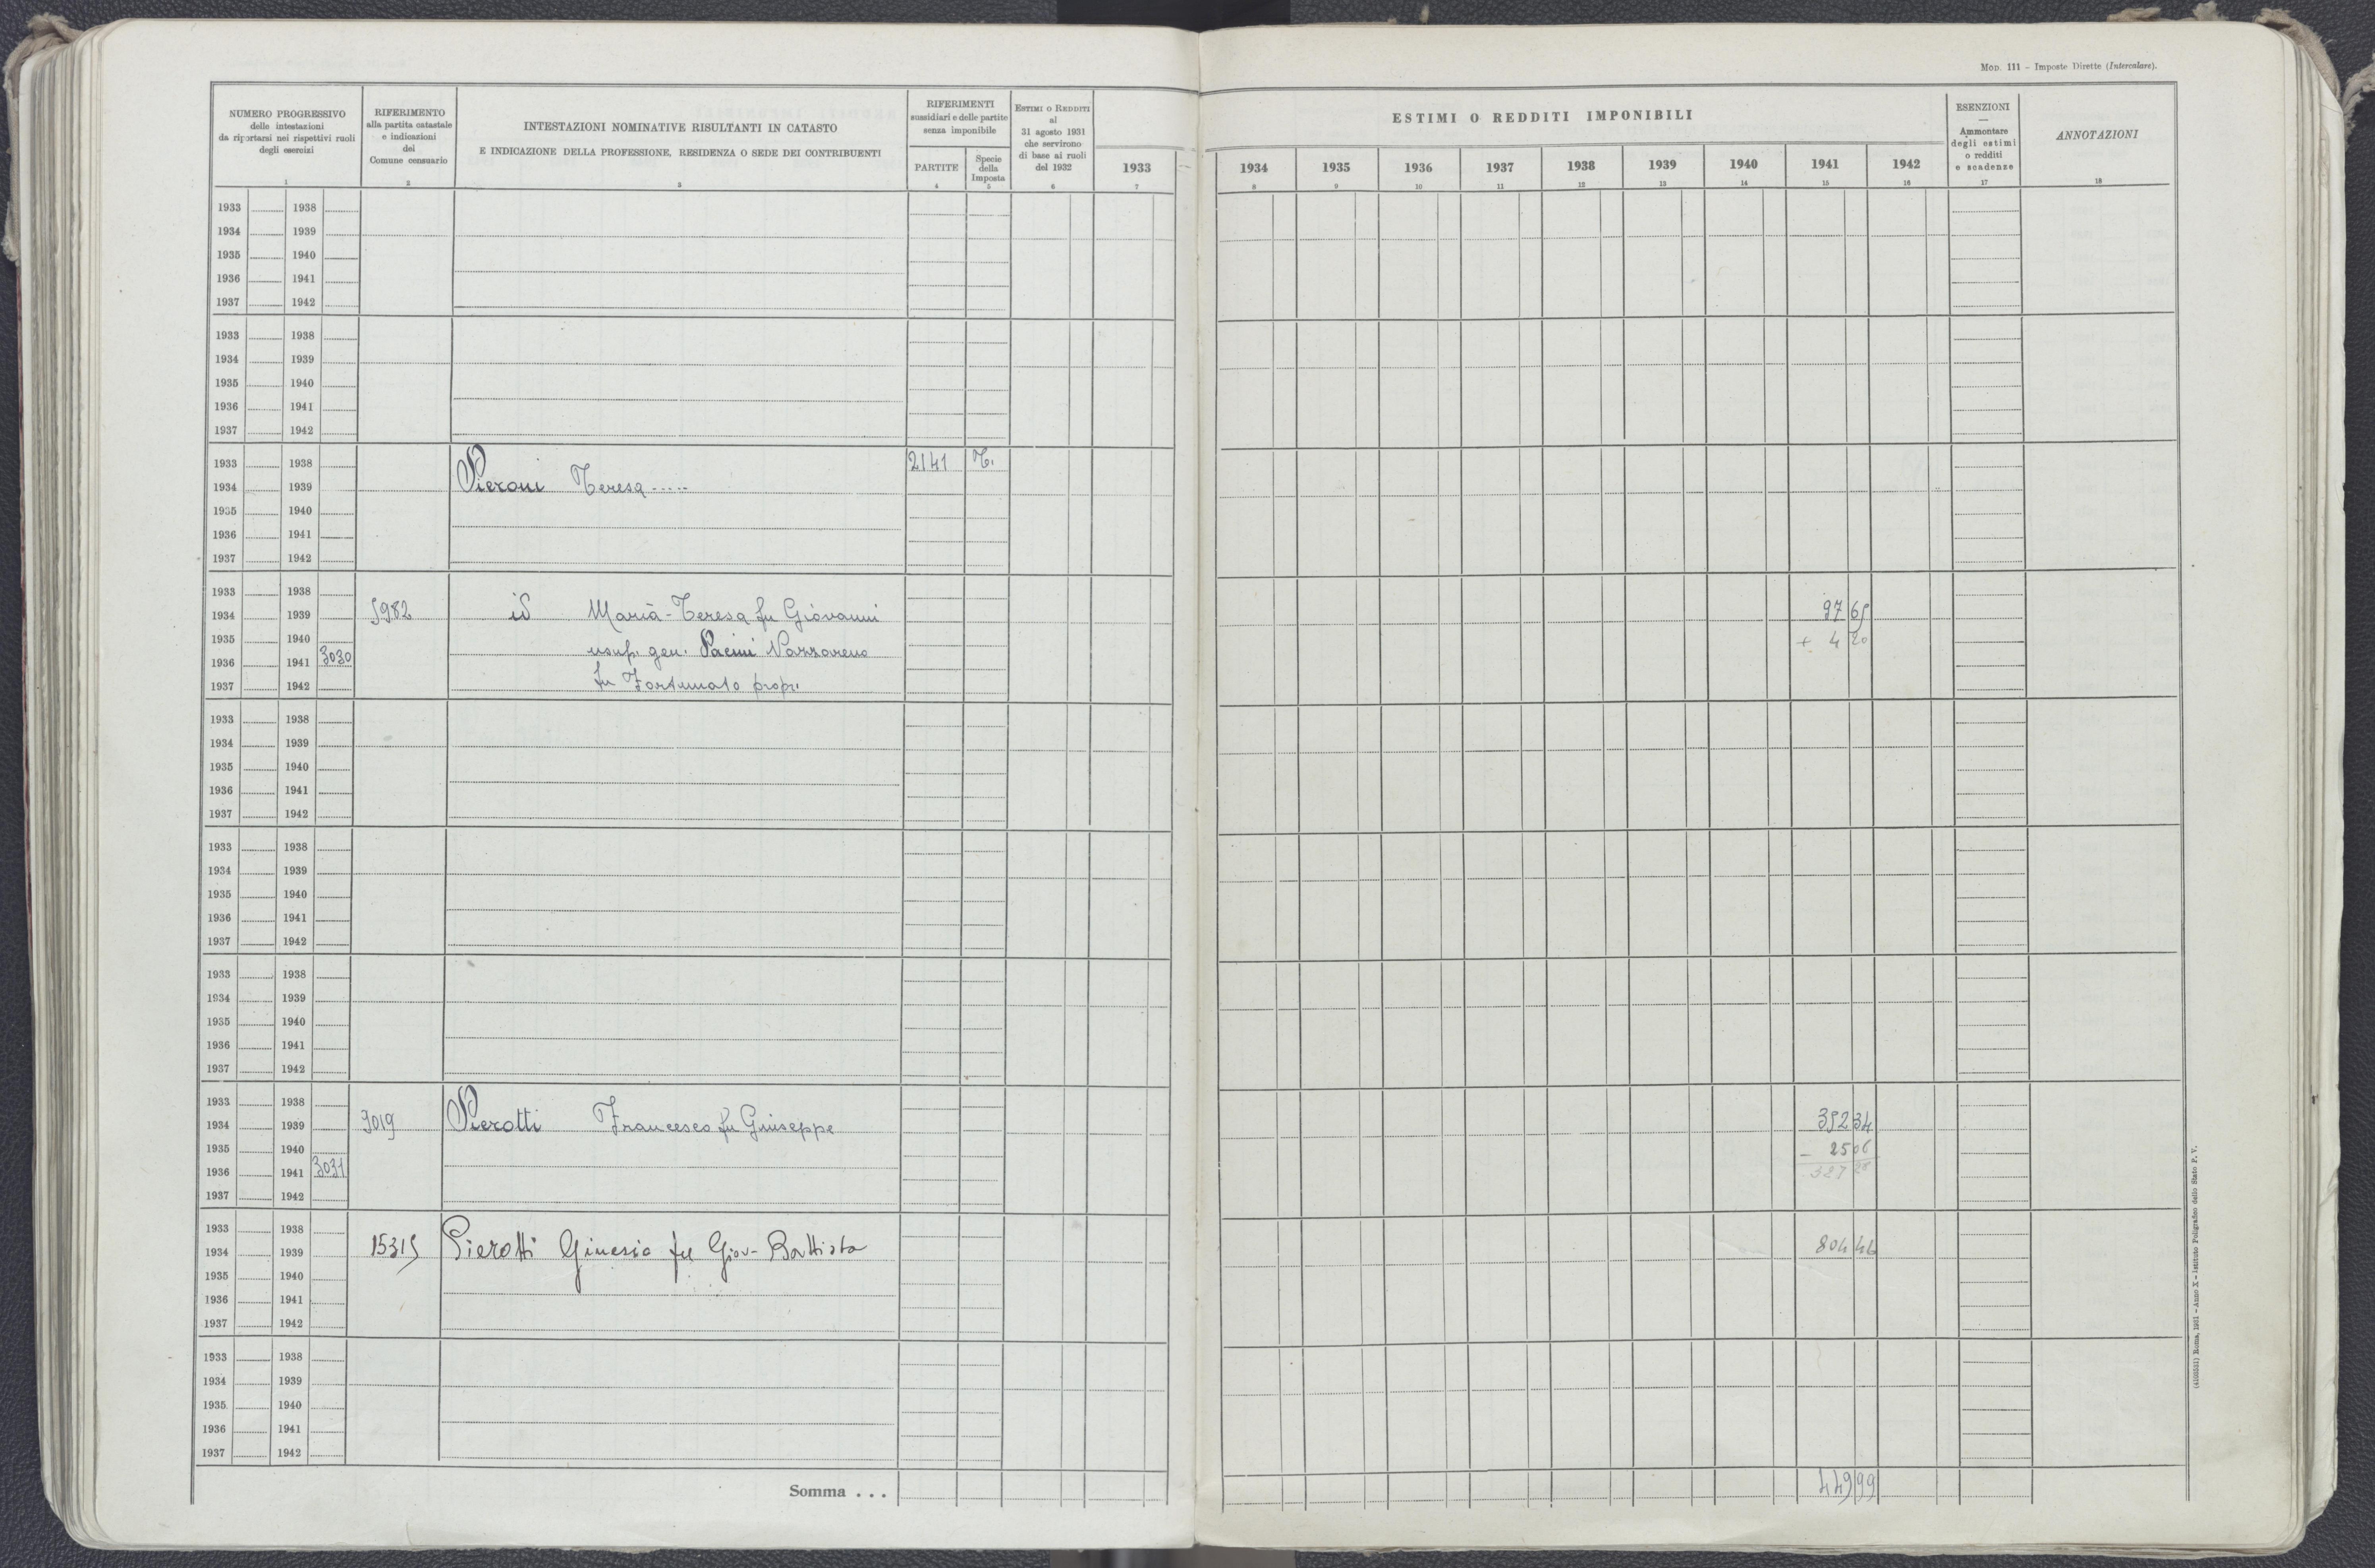 MOD. 111 – Imposte Dirette (Intercalare).
NUMERO PROGRESSIVO
delle intestazioni
da riportarsi nei rispettivi ruoli
degli esercizi
1
RIFERIMENTO
alla partita catastale
e indicazioni
del
Comune censuario
2
INTESTAZIONI NOMINATIVE RISULTANTI IN CATASTO
E INDICAZIONE DELLA PROFESSIONE, RESIDENZA O SEDE DEI CONTRIBUENTI
3
RIFERIMENTI
sussidiari e delle partite
senza imponibile
PARTITE
4
Specie
della
Imposta
5
ESTIMI O REDDITI
al
31 agosto 1931
che servirono
di base ai ruoli
del 1932
6
1933
7
ESTIMI O REDDITI IMPONIBILI
1934 1935 1936 1937 1938 1939 1940 1941 1942
8 9 10 11 12 13 14 15 16
ESENZIONI
—
Ammontare
degli estimi
o redditi
e scadenze
17
ANNOTAZIONI
18
1933 1938
1934 1939
1935 1940
1936 1941
1937 1942
1933 1938
1934 1939
1935 1940
1936 1941
1937 1942
1933 1938 2141 T.
1934 1939 Pieroni Teresa -----
1935 1940
1936 1941
1937 1942
1933 1938
1934 1939 5982 id Maria-Teresa fu Giovanni 97 65
1935 1940 + 4 20
1936 1941 3030 usuf. gen. Pacini Nazzareno
1937 1942 fu Fortunato propr.
1933 1938
1934 1939
1935 1940
1936 1941
1937 1942
1933 1938
1934 1939
1935 1940
1936 1941
1937 1942
1933 1938
1934 1939
1935 1940
1936 1941
1937 1942
1933 1938
1934 1939 9019 Pierotti Francesco fu Giuseppe 352 34
1935 1940 – 25 06
1936 1941 3031 327 28
1937 1942
1933 1938
1934 1939 15315 Pierotti Ginesio fu Giov-Battista 804 46
1935 1940
1936 1941
1937 1942
1933 1938
1934 1939
1935 1940
1936 1941
1937 1942
Somma . . . 449 99
(4100531) Roma, 1931 – Anno X – Istituto Poligrafico dello Stato P. V.